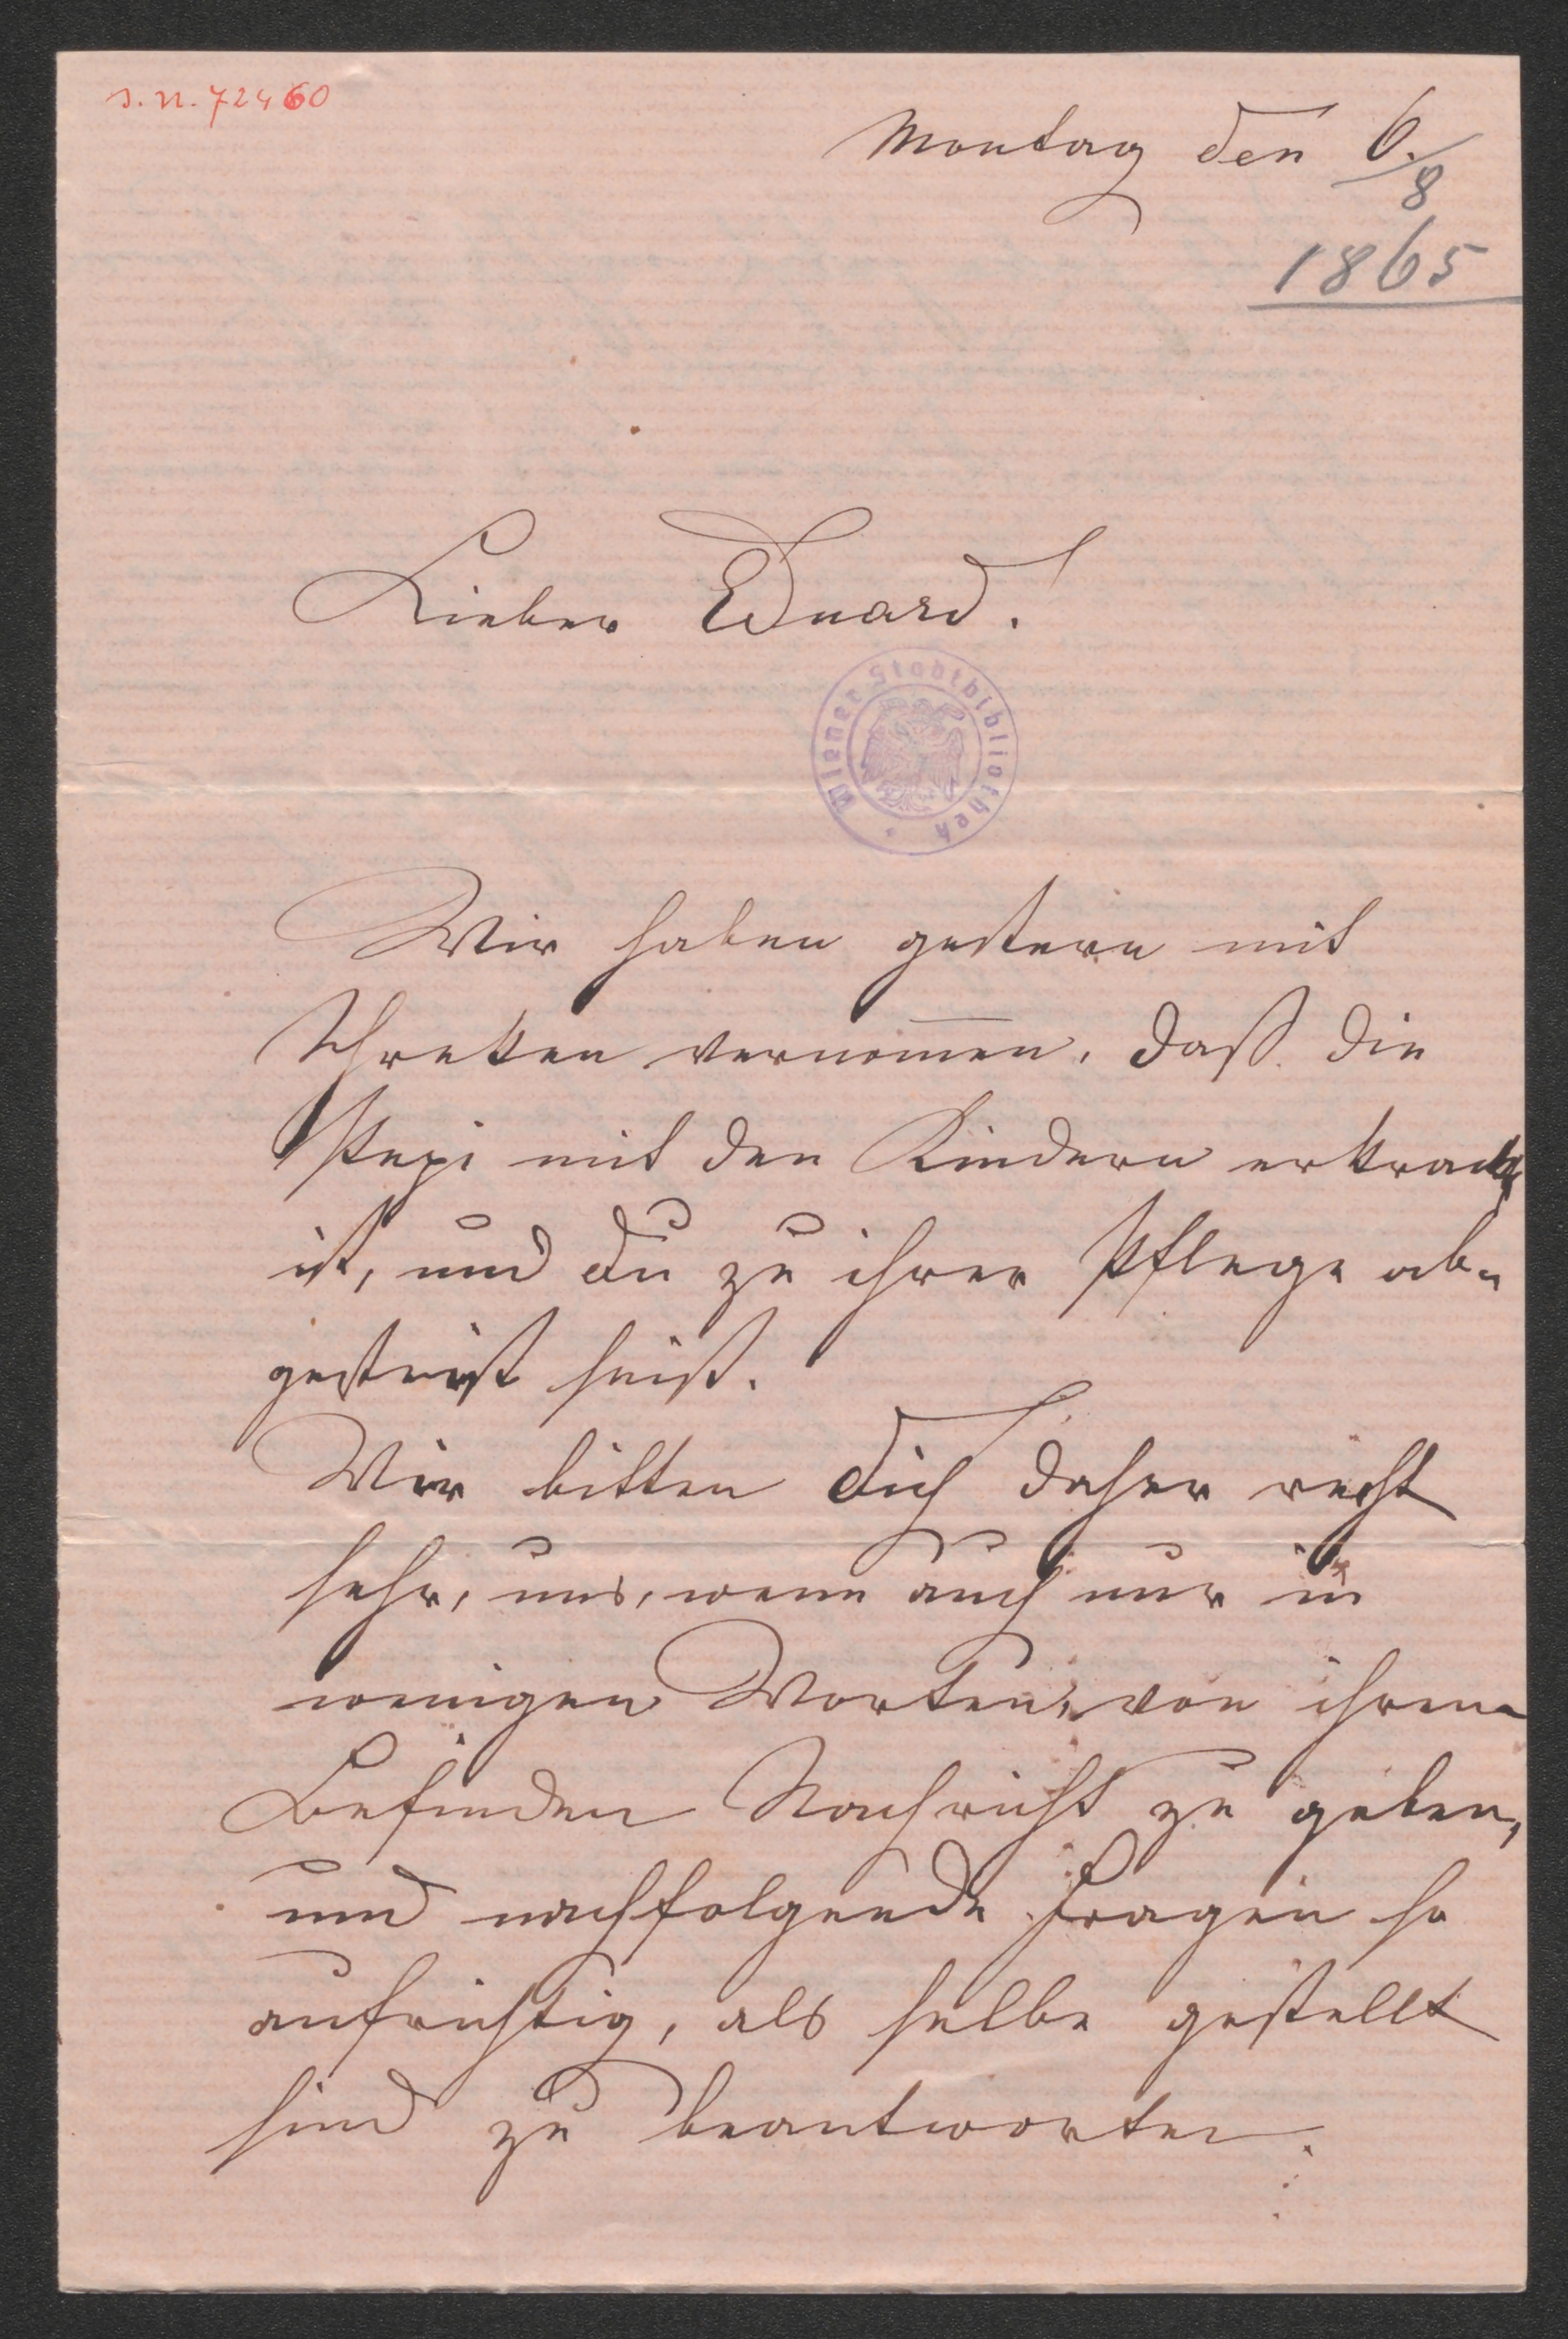 J. N. 72460
Montag den 6./8
1865
Lieber Eduard.
Wiener Stadtbibliothek
Wir haben gestern mit
Schrekken vernom̅en, daß die
Pepi mit den Kindern erkrankt
ist, und Du zu ihrer Pflege ab-
gereist seist.
Wir bitten Dich daher recht
sehr, uns, wenn auch nur in
wenigen Worten, von ihrem
Befinden Nachricht zu geben,
und nachfolgende Fragen so
aufrichtig, als selbe gestellt
sind zu beantworten.